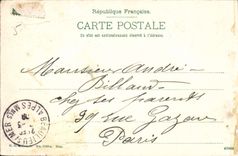 République Française
CARTE POSTALE
Ce côté est exclusivement réservé à l'adresse.
Monsieur André
Billaud
chez ses parents
39 rue Gazan
Paris
BEAULIEU-S-MER
ALPES MMES